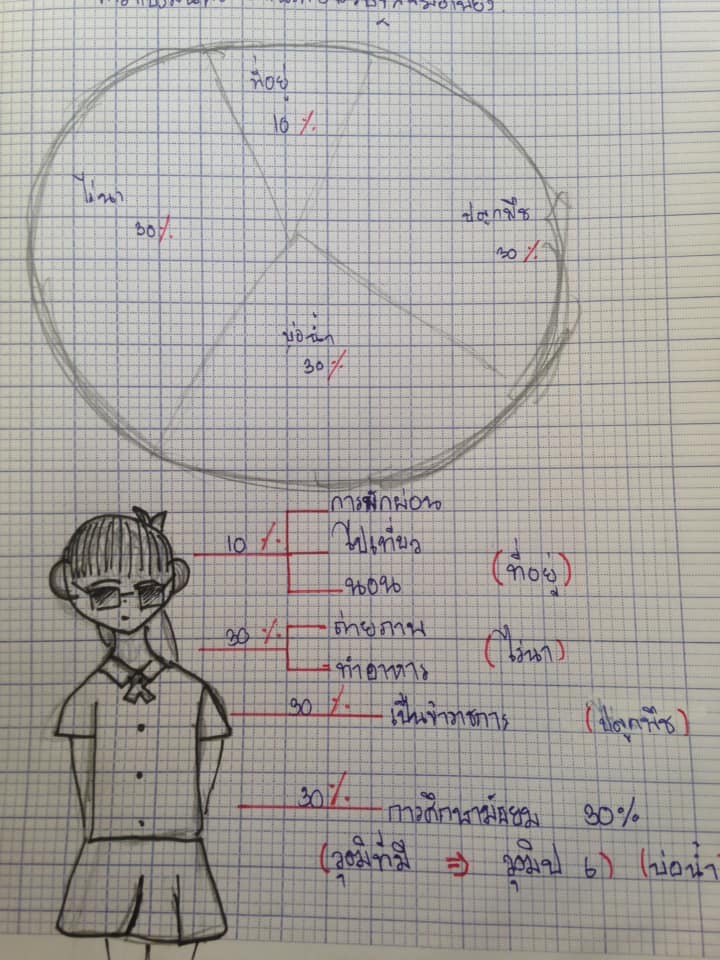 ที่อยู่
10 %
ไร่นา
30%
ปลูกพืช
30 %
บ่อน้ำ
30%
การพักผ่อน
10 % ไปเที่ยว (ที่อยู่)
นอน
30 % ถ่ายภาพ (ไร่นา)
ทำอาหาร
30 % เป็นข้าราชการ (ปลูกพืช)
30% การศึกษามัธยม 30%
(วุฒิที่มี ⇒ วุฒิป 6) (บ่อน้ำ